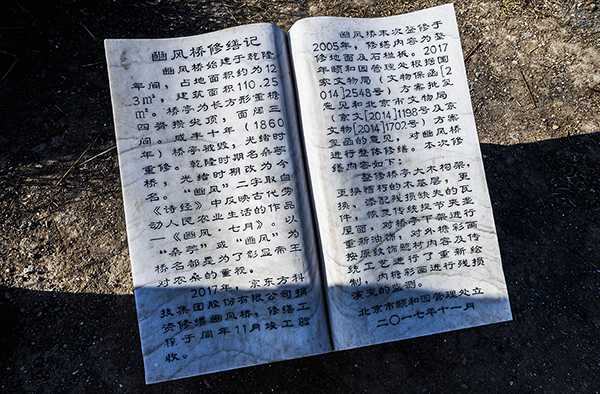 豳风桥修缮记
豳风桥始建于乾隆
年间，占地面积约为12
.3m²，建筑面积110.25
m²。桥亭为长方形重檐
四脊攒尖顶，面阔三
间。咸丰十年（1860
年）桥亭被毁，光绪时
重修。乾隆时期名桑苎
桥，光绪时期改为今
名。“豳风”二字取自
《诗经》中反映古代劳
动人民农业生活的作品
—《豳风·七月》。以
“桑苎”或“豳风”为
桥名都是为了彰显帝王
对农桑的重视。
2017年，京东方科
技集团股份有限公司捐
资修缮豳风桥，修缮工
程于同年11月竣工验
收。
豳风桥末次整修于
2005年，修缮内容为整
修地面及石栏板。2017
年颐和园管理处根据国
家文物局（文物保函[2
014]2548号）方案批复
意见和北京市文物局
（京文[2014]1198号及京
文物[2014]1702号）方案
复函的意见，对豳风桥
进行整体修缮。本次修
缮内容如下：
整修桥亭大木构架，
更换糟朽的木基层，更
换、添配残损缺失的瓦
件，恢复传统捉节夹垄
屋面，对桥亭下架进行
重新油饰，对外檐彩画
按原纹饰题材内容及传
统工艺进行了重新绘
制，内檐彩画进行残损
演变的监测。
北京市颐和园管理处立
二〇一七年十一月